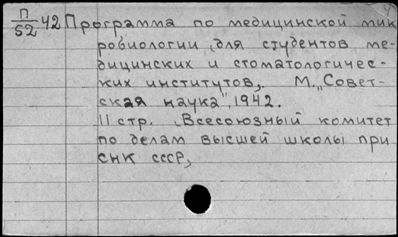 П/52 42 Программа по медицинской мик
робиологии „для студентов ме-
дицинских и стоматологичес-
ких институтов„. М. „Совет-
ская наука", 1942.
11 стр. „Всесоюзный комитет
по делам высшей школы при
СНК СССР„